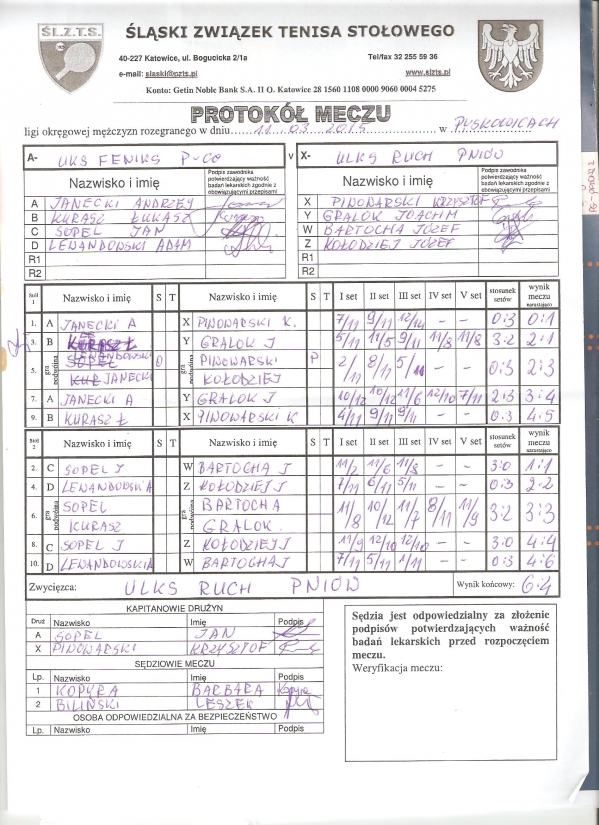 ŚL.Z.T.S.
ŚLĄSKI ZWIĄZEK TENISA STOŁOWEGO
40-227 Katowice, ul. Bogucicka 2/1a Tel/fax 32 255 59 36
e-mail: slaski@pzts.pl www.slzts.pl
Konto: Getin Noble Bank S.A. II O. Katowice 28 1560 1108 0000 9060 0004 5275
PROTOKÓŁ MECZU
ligi okręgowej mężczyzn rozegranego w dniu 11 03 2015 w PYSKOWICACH
A- UKS FENIKS P-CE v X- ULKS RUCH PNIÓW
Nazwisko i imię Podpis zawodnika potwierdzający ważność badań lekarskich zgodnie z obowiązującymi przepisami Nazwisko i imię Podpis zawodnika potwierdzający ważność badań lekarskich zgodnie z obowiązującymi przepisami
A JANECKI ANDRZEJ X PINOWARSKI KRZYSZTOF
B KURASZ ŁUKASZ Y GRALOK JOACHIM
C SOPEL JAN W BARTOCHA JÓZEF
D LEWANDOWSKI ADAM Z KOŁODZIEJ JÓZEF
R1 R1
R2 R2
Stół 1 Nazwisko i imię S T Nazwisko i imię S T I set II set III set IV set V set stosunek setów wynik meczu narastająco
1. A JANECKI A X PINOWARSKI K. 7/11 9/11 12/14 - - 0:3 0:1
3. B KURASZ Ł Y GRALOK J 5/11 11/5 9/11 11/8 11/8 3:2 2:1
5. gra podwójna LEWANDOWSKI O gra podwójna PINOWARSKI P 2/11 8/11 5/11 - - 0:3 2:3
JANECKI KOŁODZIEJ
7. A JANECKI A Y GRALOK J 10/12 10/12 11/6 12/10 7/11 2:3 3:4
9. B KURASZ Ł X PINOWARSKI K 4/11 9/11 9/11 - - 0:3 4:5
Stół 2 Nazwisko i imię S T Nazwisko i imię S T I set II set III set IV set V set stosunek setów wynik meczu narastająco
2. C SOPEL J W BARTOCHA J 11/2 11/6 11/8 - - 3:0 1:1
4. D LEWANDOWSKI A Z KOŁODZIEJ J 7/11 6/11 5/11 - - 0:3 2:2
6. gra podwójna SOPEL gra podwójna BARTOCHA 11/8 10/12 11/7 8/11 11/9 3:2 3:3
KURASZ GRALOK
8. C SOPEL J Z KOŁODZIEJ J 11/9 12/10 12/10 - - 3:0 4:4
10. D LEWANDOWSKI A W BARTOCHA J 7/11 5/11 1/11 - - 0:3 4:6
Zwycięzca: ULKS RUCH PNIÓW Wynik końcowy: 6:4
KAPITANOWIE DRUŻYN
Druż Nazwisko Imię Podpis
A SOPEL JAN
X PINOWARSKI KRZYSZTOF
SĘDZIOWIE MECZU
Lp. Nazwisko Imię Podpis
1 KOPYRA BARBARA Kopyra
2 BILIŃSKI LESZEK
OSOBA ODPOWIEDZIALNA ZA BEZPIECZEŃSTWO
Lp. Nazwisko Imię Podpis
Sędzia jest odpowiedzialny za złożenie
podpisów potwierdzających ważność
badań lekarskich przed rozpoczęciem
meczu.
Weryfikacja meczu: